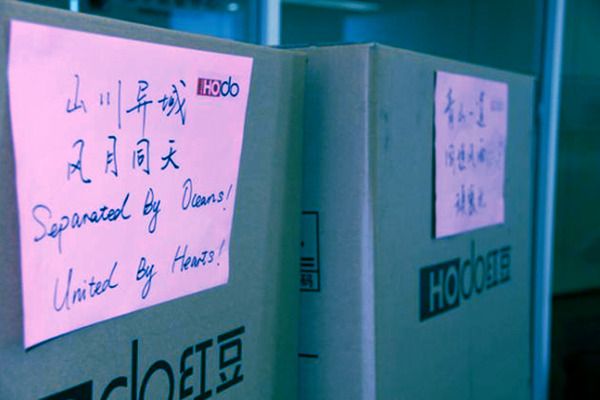 HOdo
山川异域
风月同天
Separated By Oceans!
United By Hearts!
do红豆
青山一道
同担风雨
HOdo红豆